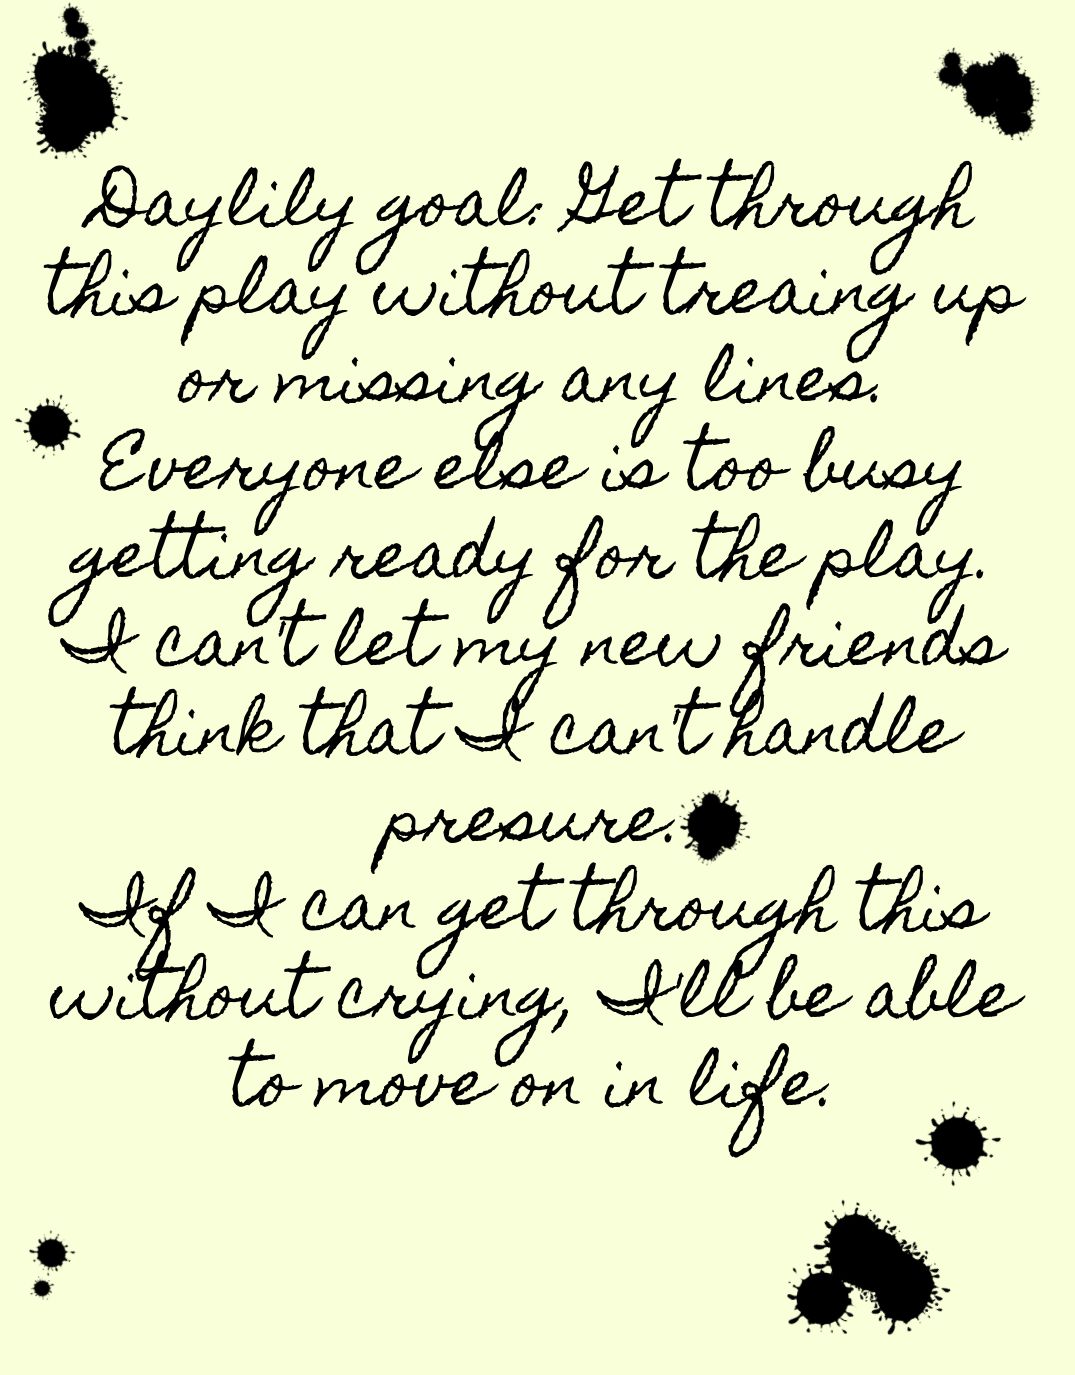 Daylily goal: Get through
this play without treaing up
or missing any lines.
Everyone else is too busy
getting ready for the play.
I can't let my new friends
think that I can't handle
presure.
If I can get through this
without crying, I'll be able
to move on in life.